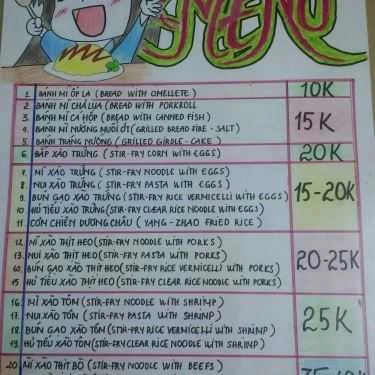 MENU
1 BÁNH MÌ ỐP LA (BREAD WITH OMELLETE) 10K
2 BÁNH MÌ CHẢ LỤA (BREAD WITH PORKROLL
3 BÁNH MÌ CÁ HỘP (BREAD WITH CANNED FISH) 15K
4 BÁNH MÌ NƯỚNG MUỐI ỚT (GRILLED BREAD FIRE - SALT)
5 BÁNH TRÁNG NƯỚNG (GRILLED GIRDLE - CAKE)
6. BẮP XÀO TRỨNG (STIR-FRY CORN WITH EGGS) 20K
7. MÌ XÀO TRỨNG (STIR-FRY NOODLE WITH EGGS)
8 NUI XÀO TRỨNG (STIR-FRY PASTA WITH EGGS)
9 BÚN GẠO XÀO TRỨNG (STIR-FRY RICE VERMICELLI WITH EGGS) 15-20K
10 HỦ TIẾU XÀO TRỨNG (STIR-FRY CLEAR RICE NOODLE WITH EGGS)
11 CƠM CHIÊN DƯƠNG CHÂU (YANG-ZHAO FRIED RICE)
12 MÌ XÀO THỊT HEO (STIR-FRY NOODLE WITH PORKS)
13 NUI XÀO THỊT HEO (STIR-FRY PASTA WITH PORKS) 20-25K
BÚN GẠO XÀO THỊT HEO (STIR-FRY RICE VERMICELLI WITH PORKS)
15 HỦ TIẾU XÀO THỊT HEO (STIR-FRY CLEAR RICE NOODLE WITH PORKS)
16 MÌ XÀO TÔM (STIR-FRY NOODLE WITH SHRIMP)
17 NUI XÀO TÔM (STIR-FRY PASTA WITH SHRIMP) 25K
18 BÚN GẠO XÀO TÔM (STIR-FRY RICE VERMICELLI WITH SHRIMP)
19 HỦ TIẾU XÀO TÔM (STIR-FRY CLEAR RICE NOODLE WITH SHRIMP)
20 MÌ XÀO THỊT BÒ (STIR-FRY NOODLE WITH BEEFS)